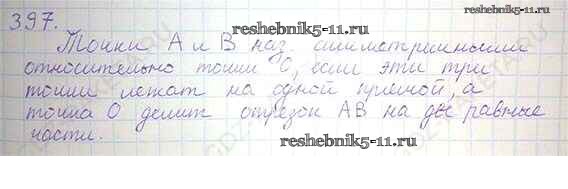 397.
reshebnik5-11.ru
Точки А и В наз. симметричными
относительно точки О, если эти три
точки лежат на одной прямой, а
точка О делит отрезок АВ на две равные
части.
reshebnik5-11.ru